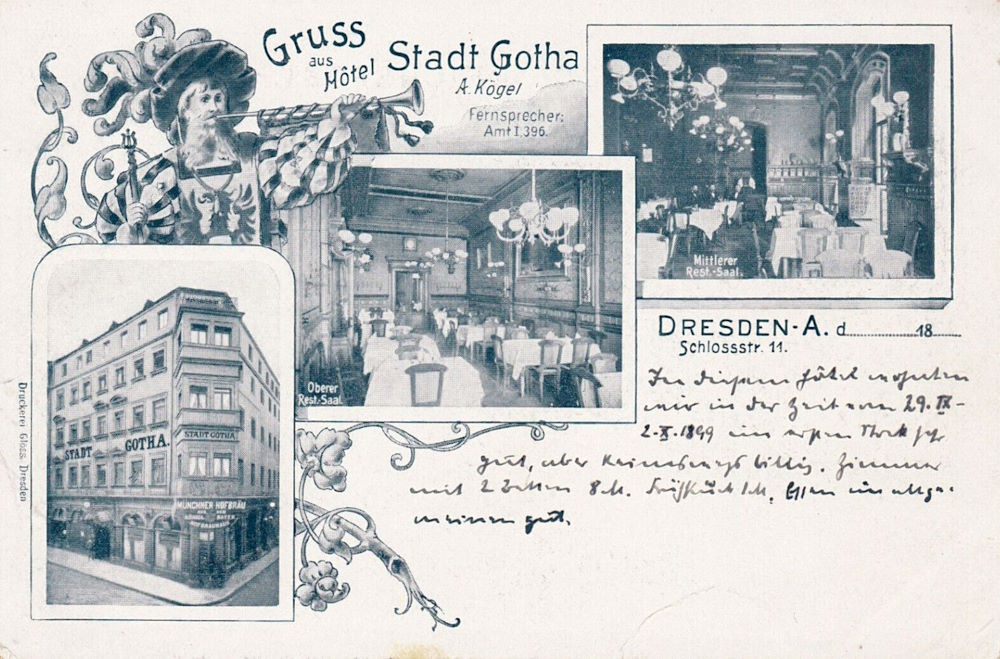 Gruss
aus
Hôtel
Stadt Gotha
A. Kögel
Fernsprecher:
Amt I, 396.
Mittlerer
Rest.-Saal.
Oberer
Rest.-Saal
DRESDEN-A. d 18
Schlossstr. 11.
In diesem Hôtel wohnten
wir in der Zeit vom 29. IX-
2-X. 1899 im ersten Stock sehr
gut, aber keineswegs billig. Zimmer
mit 2 Betten 8 M. Frühstück 1 M. Essen im allge-
meinen gut.
STADT GOTHA.
STADT GOTHA
MÜNCHNER-HOFBRÄU
HOFBRÄUHAUS
Druckerei Gloss, Dresden